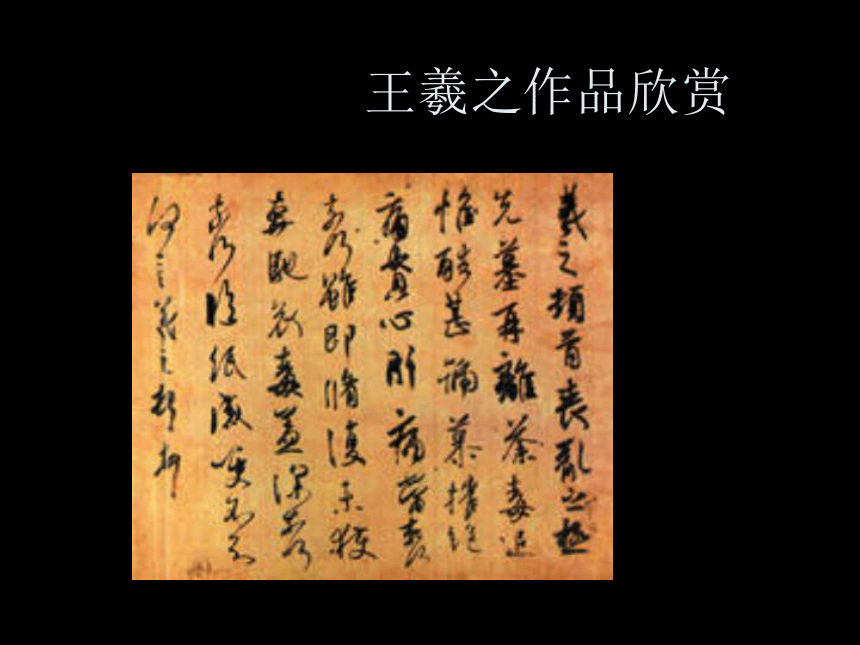 王羲之作品欣赏
羲之頓首喪亂之極
先墓再離荼毒追
惟酷甚號慕摧絕
痛貫心肝痛當柰何
柰何雖即脩復未獲
奔馳哀毒益深柰何
柰何臨紙感哽不知
何言羲之頓首